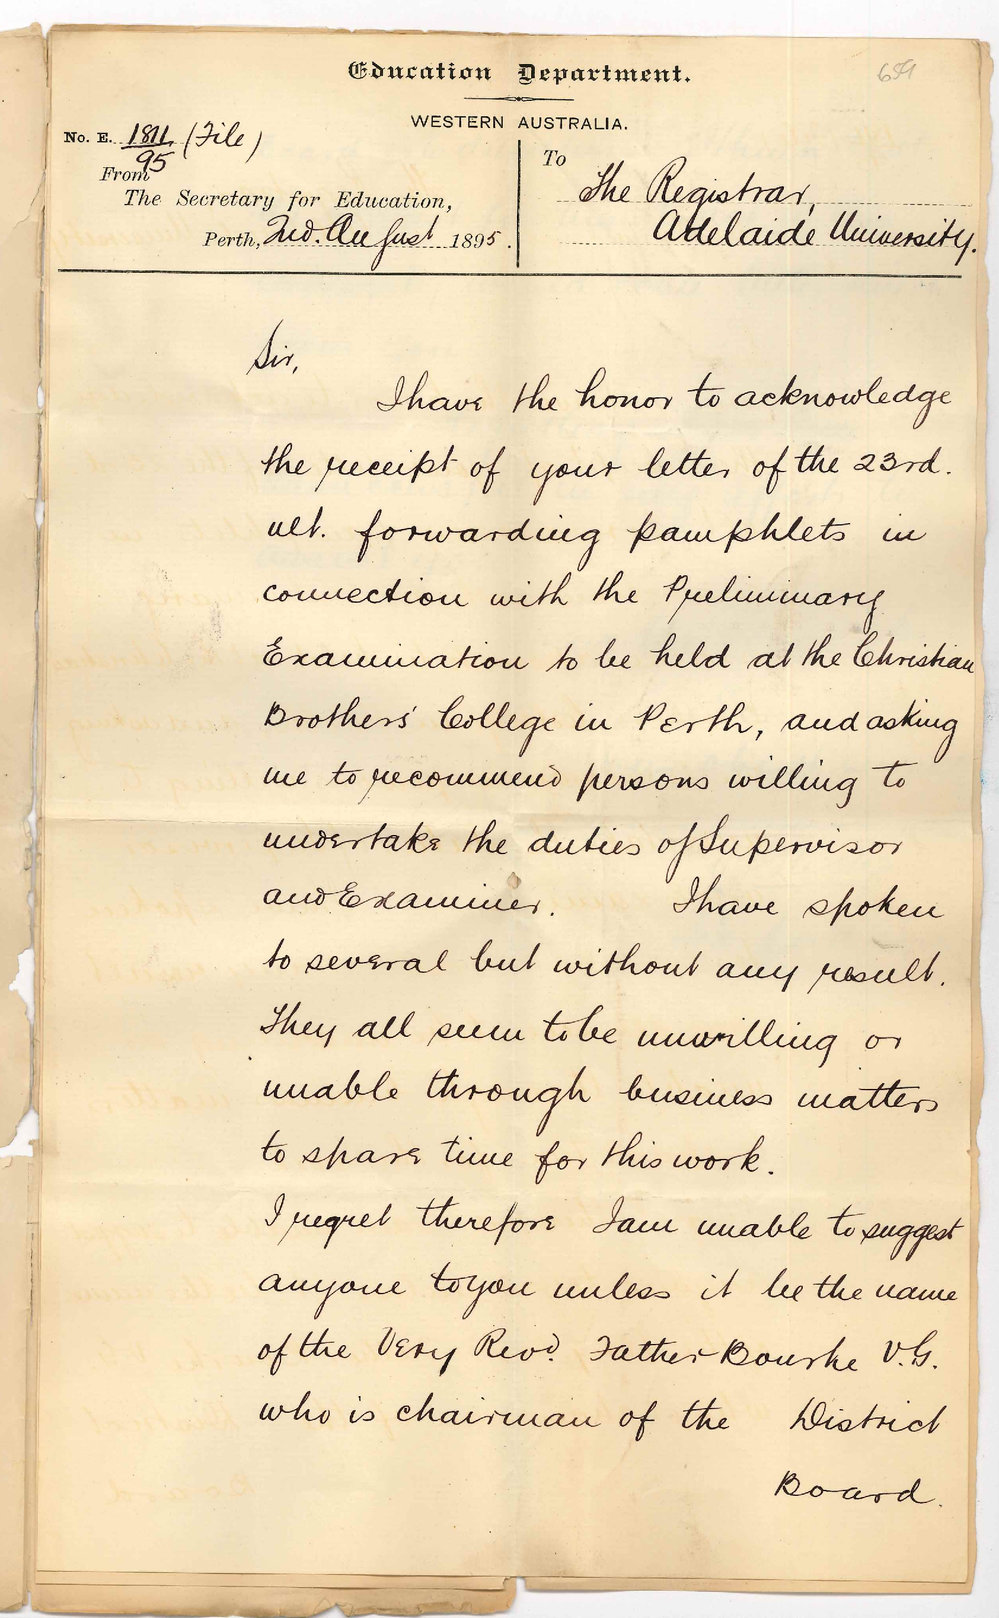 Education Department.
659
WESTERN AUSTRALIA.
No. E. 1811/95 (File)
From
The Secretary for Education,
Perth, 2nd. August 1895.
To
The Registrar,
Adelaide University.
Sir,
I have the honor to acknowledge
the receipt of your letter of the 23rd.
ult. forwarding pamphlets in
connection with the Preliminary
Examination to be held at the Christian
Brothers' College in Perth, and asking
me to recommend persons willing to
undertake the duties of Supervisor
and Examiner. I have spoken
to several but without any result.
They all seem to be unwilling or
unable through business matters
to spare time for this work.
I regret therefore I am unable to suggest
anyone to you unless it be the name
of the Very Revd. Father Bourke V.G.
who is chairman of the District
Board.